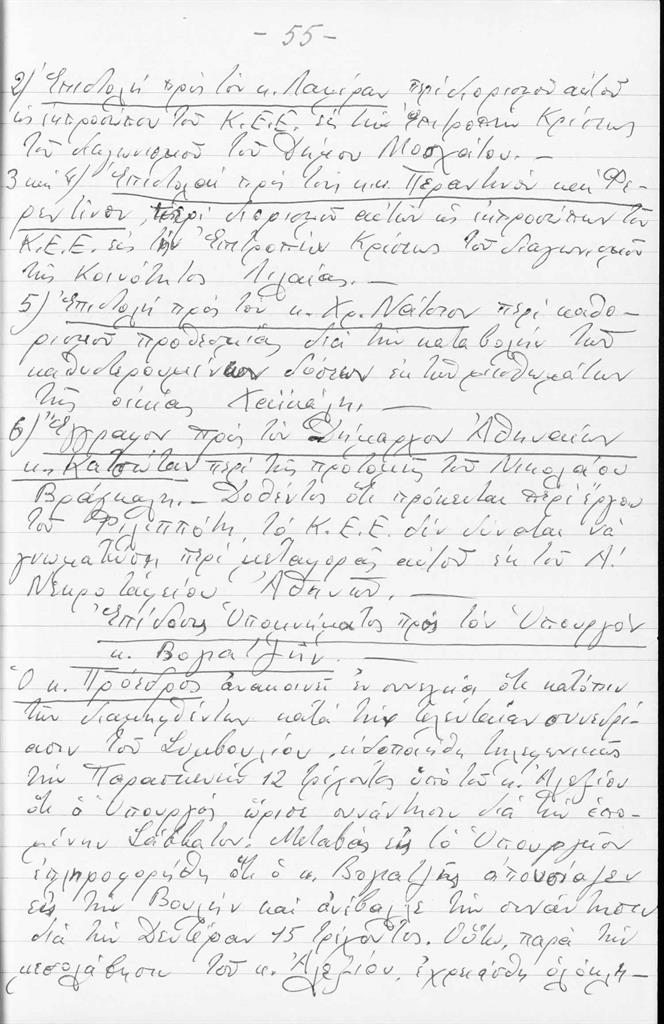 - 55 -
2) Ἐπιστολὴ πρὸς τὸν κ. Λαμέραν περὶ διορισμοῦ αὐτοῦ
ὡς ἐκπροσώπου τοῦ Κ.Ε.Ε. εἰς τὴν Ἐπιτροπὴν Κρίσεως
τοῦ διαγωνισμοῦ τοῦ Δήμου Μοσχάτου. —
3 καὶ 4) Ἐπιστολαὶ πρὸς τοὺς κ.κ. Περαντινὸν καὶ Φε-
ρεντῖνον, περὶ διορισμοῦ αὐτῶν ὡς ἐκπροσώπων τοῦ
Κ.Ε.Ε. εἰς τὴν Ἐπιτροπὴν Κρίσεως τοῦ διαγωνισμοῦ
τῆς Κοινότητος Πυλαίας. —
5) Ἐπιστολὴ πρὸς τὸν κ. Χρ. Νάτσιον περὶ καθο-
ρισμοῦ προθεσμίας διὰ τὴν καταβολὴν τῶν
καθυστερουμένων δόσεων ἐκ τῶν μισθωμάτων
τῆς οἰκίας Χαϊκάλη. —
6) Ἔγγραφον πρὸς τὸν Δήμαρχον Ἀθηναίων
κ. Κατσώταν περὶ τῆς προτομῆς τοῦ Νικολάου
Βράγκαλη. — Δοθέντος ὅτι πρόκειται περὶ ἔργου
τοῦ Φιλιππότη, τὸ Κ.Ε.Ε. δὲν δύναται νὰ
γνωματεύσῃ περὶ μεταφορᾶς αὐτοῦ ἐκ τοῦ Α!
Νεκροταφείου Ἀθηνῶν. —
Ἐπίδοσις Ὑπομνήματος πρὸς τὸν Ὑπουργὸν
κ. Βογιατζῆν. —
Ὁ κ. Πρόεδρος ἀνακοινεῖ ἐν συνεχείᾳ ὅτι κατόπιν
τῶν διαμειφθέντων κατὰ τὴν τελευταίαν συνεδρί-
ασιν τοῦ Συμβουλίου, εἰδοποιήθη τηλεφωνικῶς
τὴν Παρασκευὴν 12 τρέχοντος ὑπὸ τοῦ κ. Ἀλεξίου
ὅτι ὁ Ὑπουργὸς ὥρισε συνάντησιν διὰ τὴν ἑπο-
μένην Σάββατον. Μεταβὰς εἰς τὸ Ὑπουργεῖον
ἐπληροφορήθη ὅτι ὁ κ. Βογιατζῆς ἀπουσίαζεν
εἰς τὴν Βουλὴν καὶ ἀνέβαλε τὴν συνάντησιν
διὰ τὴν Δευτέραν 15 τρέχοντος. Οὕτω, παρὰ τὴν
μεσολάβησιν τοῦ κ. Ἀλεξίου, ἐχρειάσθη ὁλόκλη-